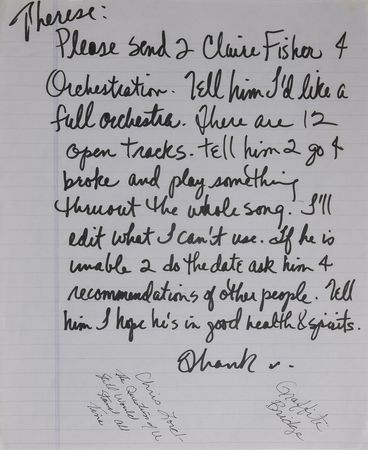 Therese:
Please send 2 Claire Fisher 4
Orchestration. Tell him I'd like a
full orchestra. There are 12
open tracks. Tell him 2 go 4
broke and play something
thruout the whole song. I'll
edit what I can't use. If he is
unable 2 do the date ask him 4
recommendations of other people. Tell
him I hope he's in good health & spirits.
Thank
Chris Lord
the Question of U
still would
stand all
time
Graffiti
Bridge